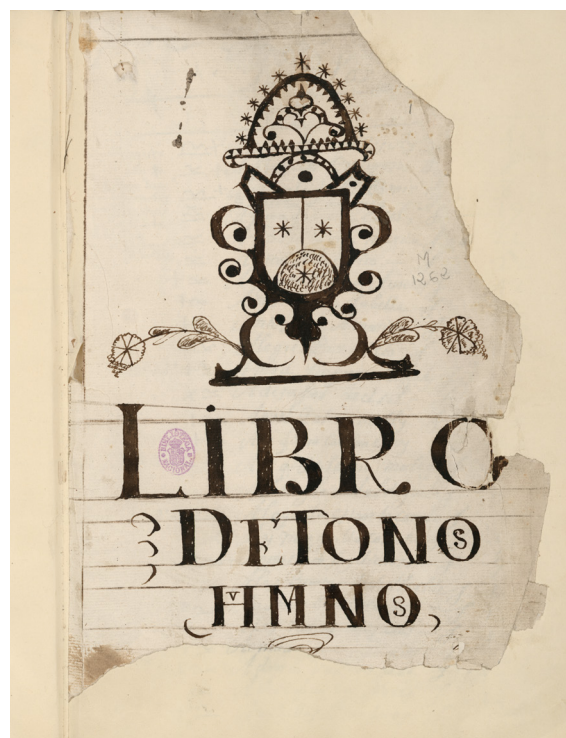 Mˢ
1262
LiBRO
DE TONOS
HVMANOS